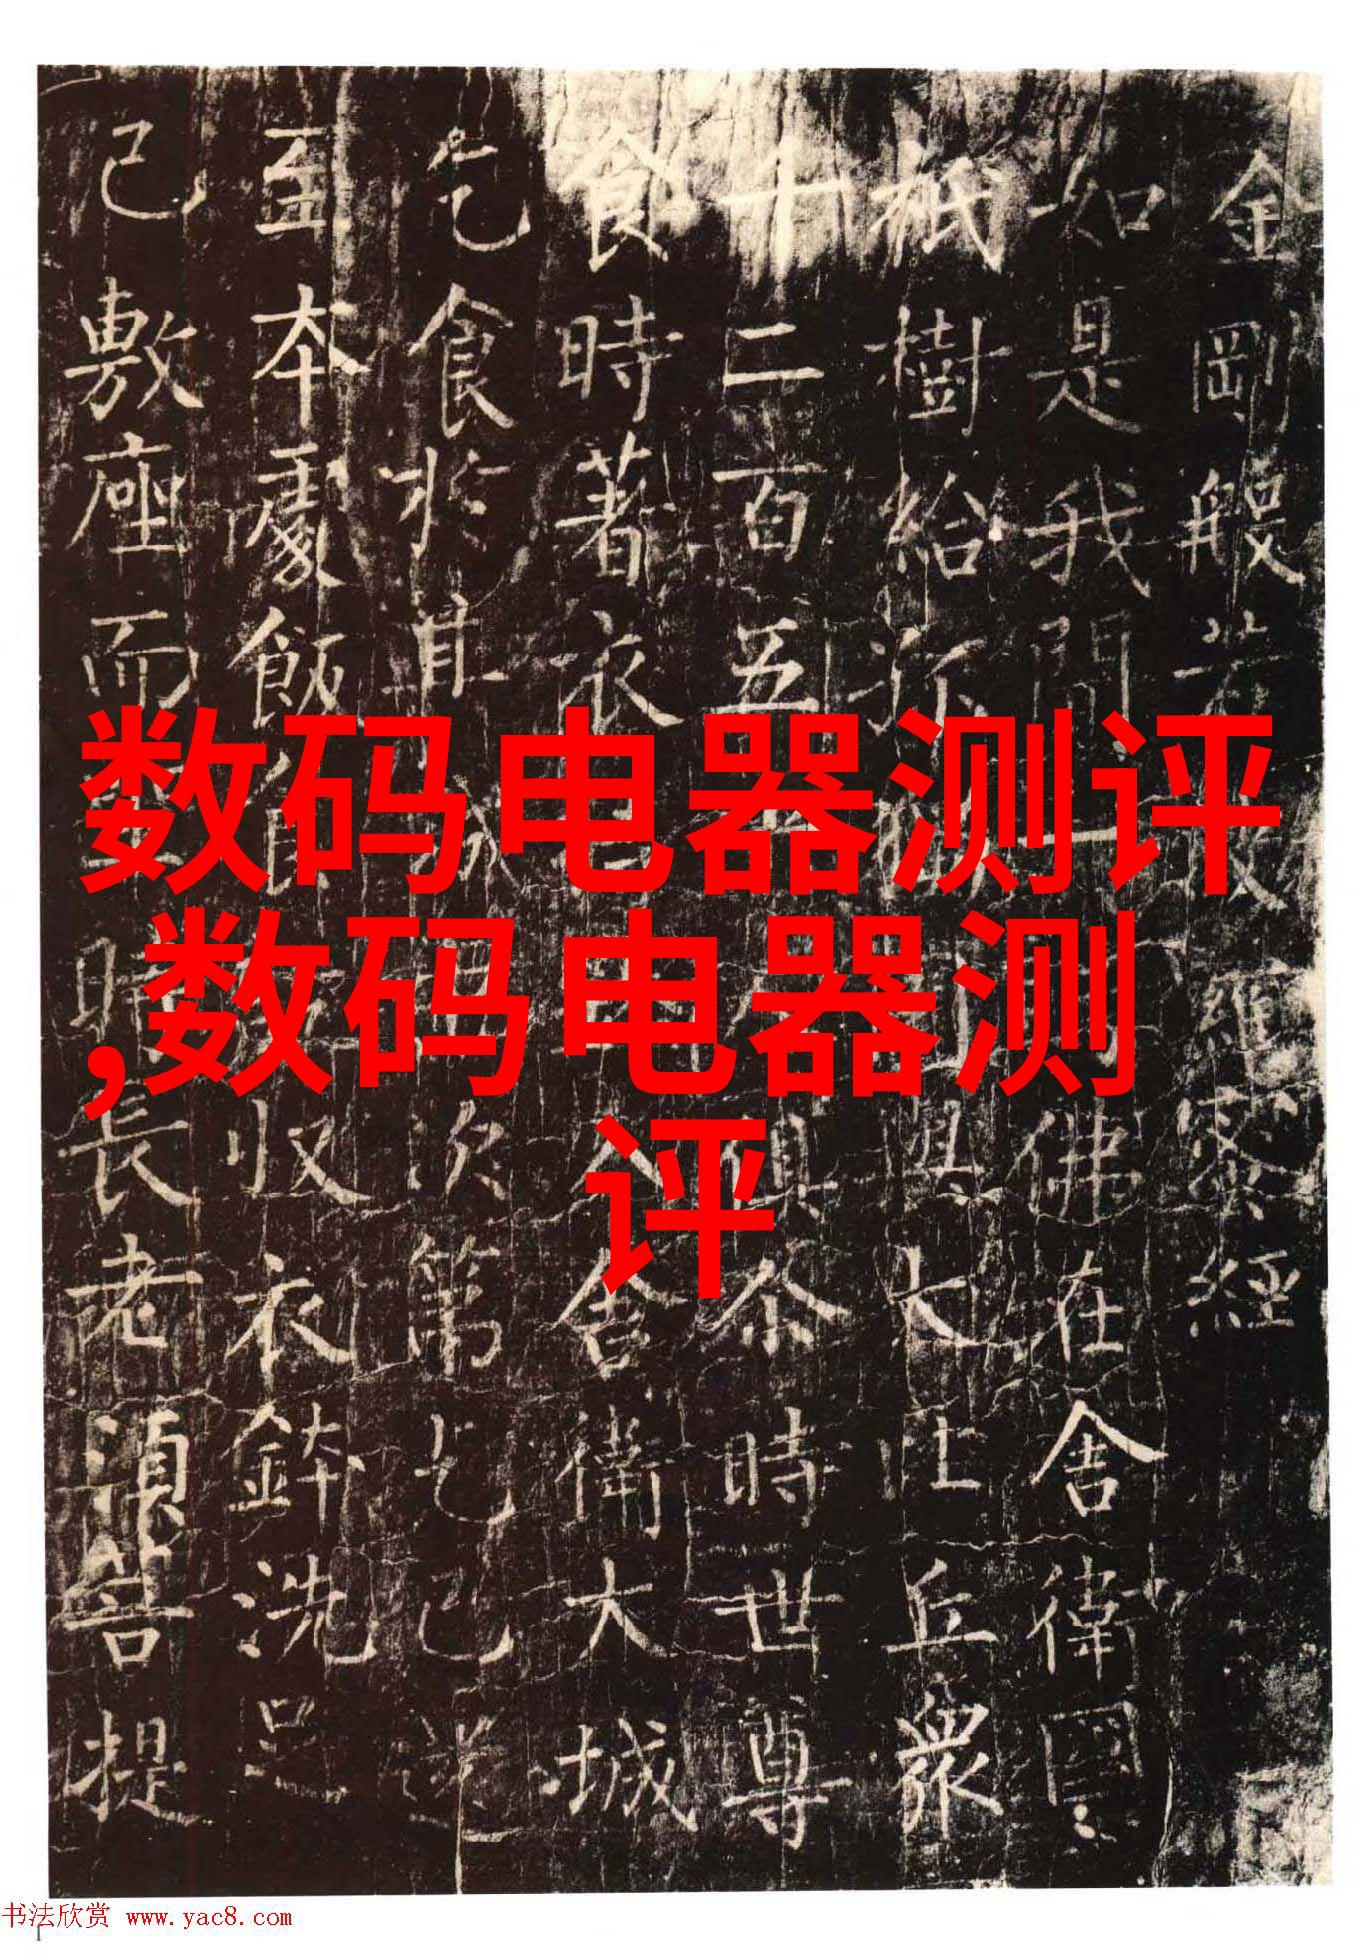 金剛般若波羅蜜經
如是我聞一佛在舍衛國
祇樹給孤大比丘眾
千二百五俱尒時世尊
食時著衣入舍衛大城
乞食於其城次第乞已還
至本處飯食收衣鉢洗足
已敷座而時長老須菩提
数码电器测评
,数码电器测
评
书法欣赏 www.yac8.com